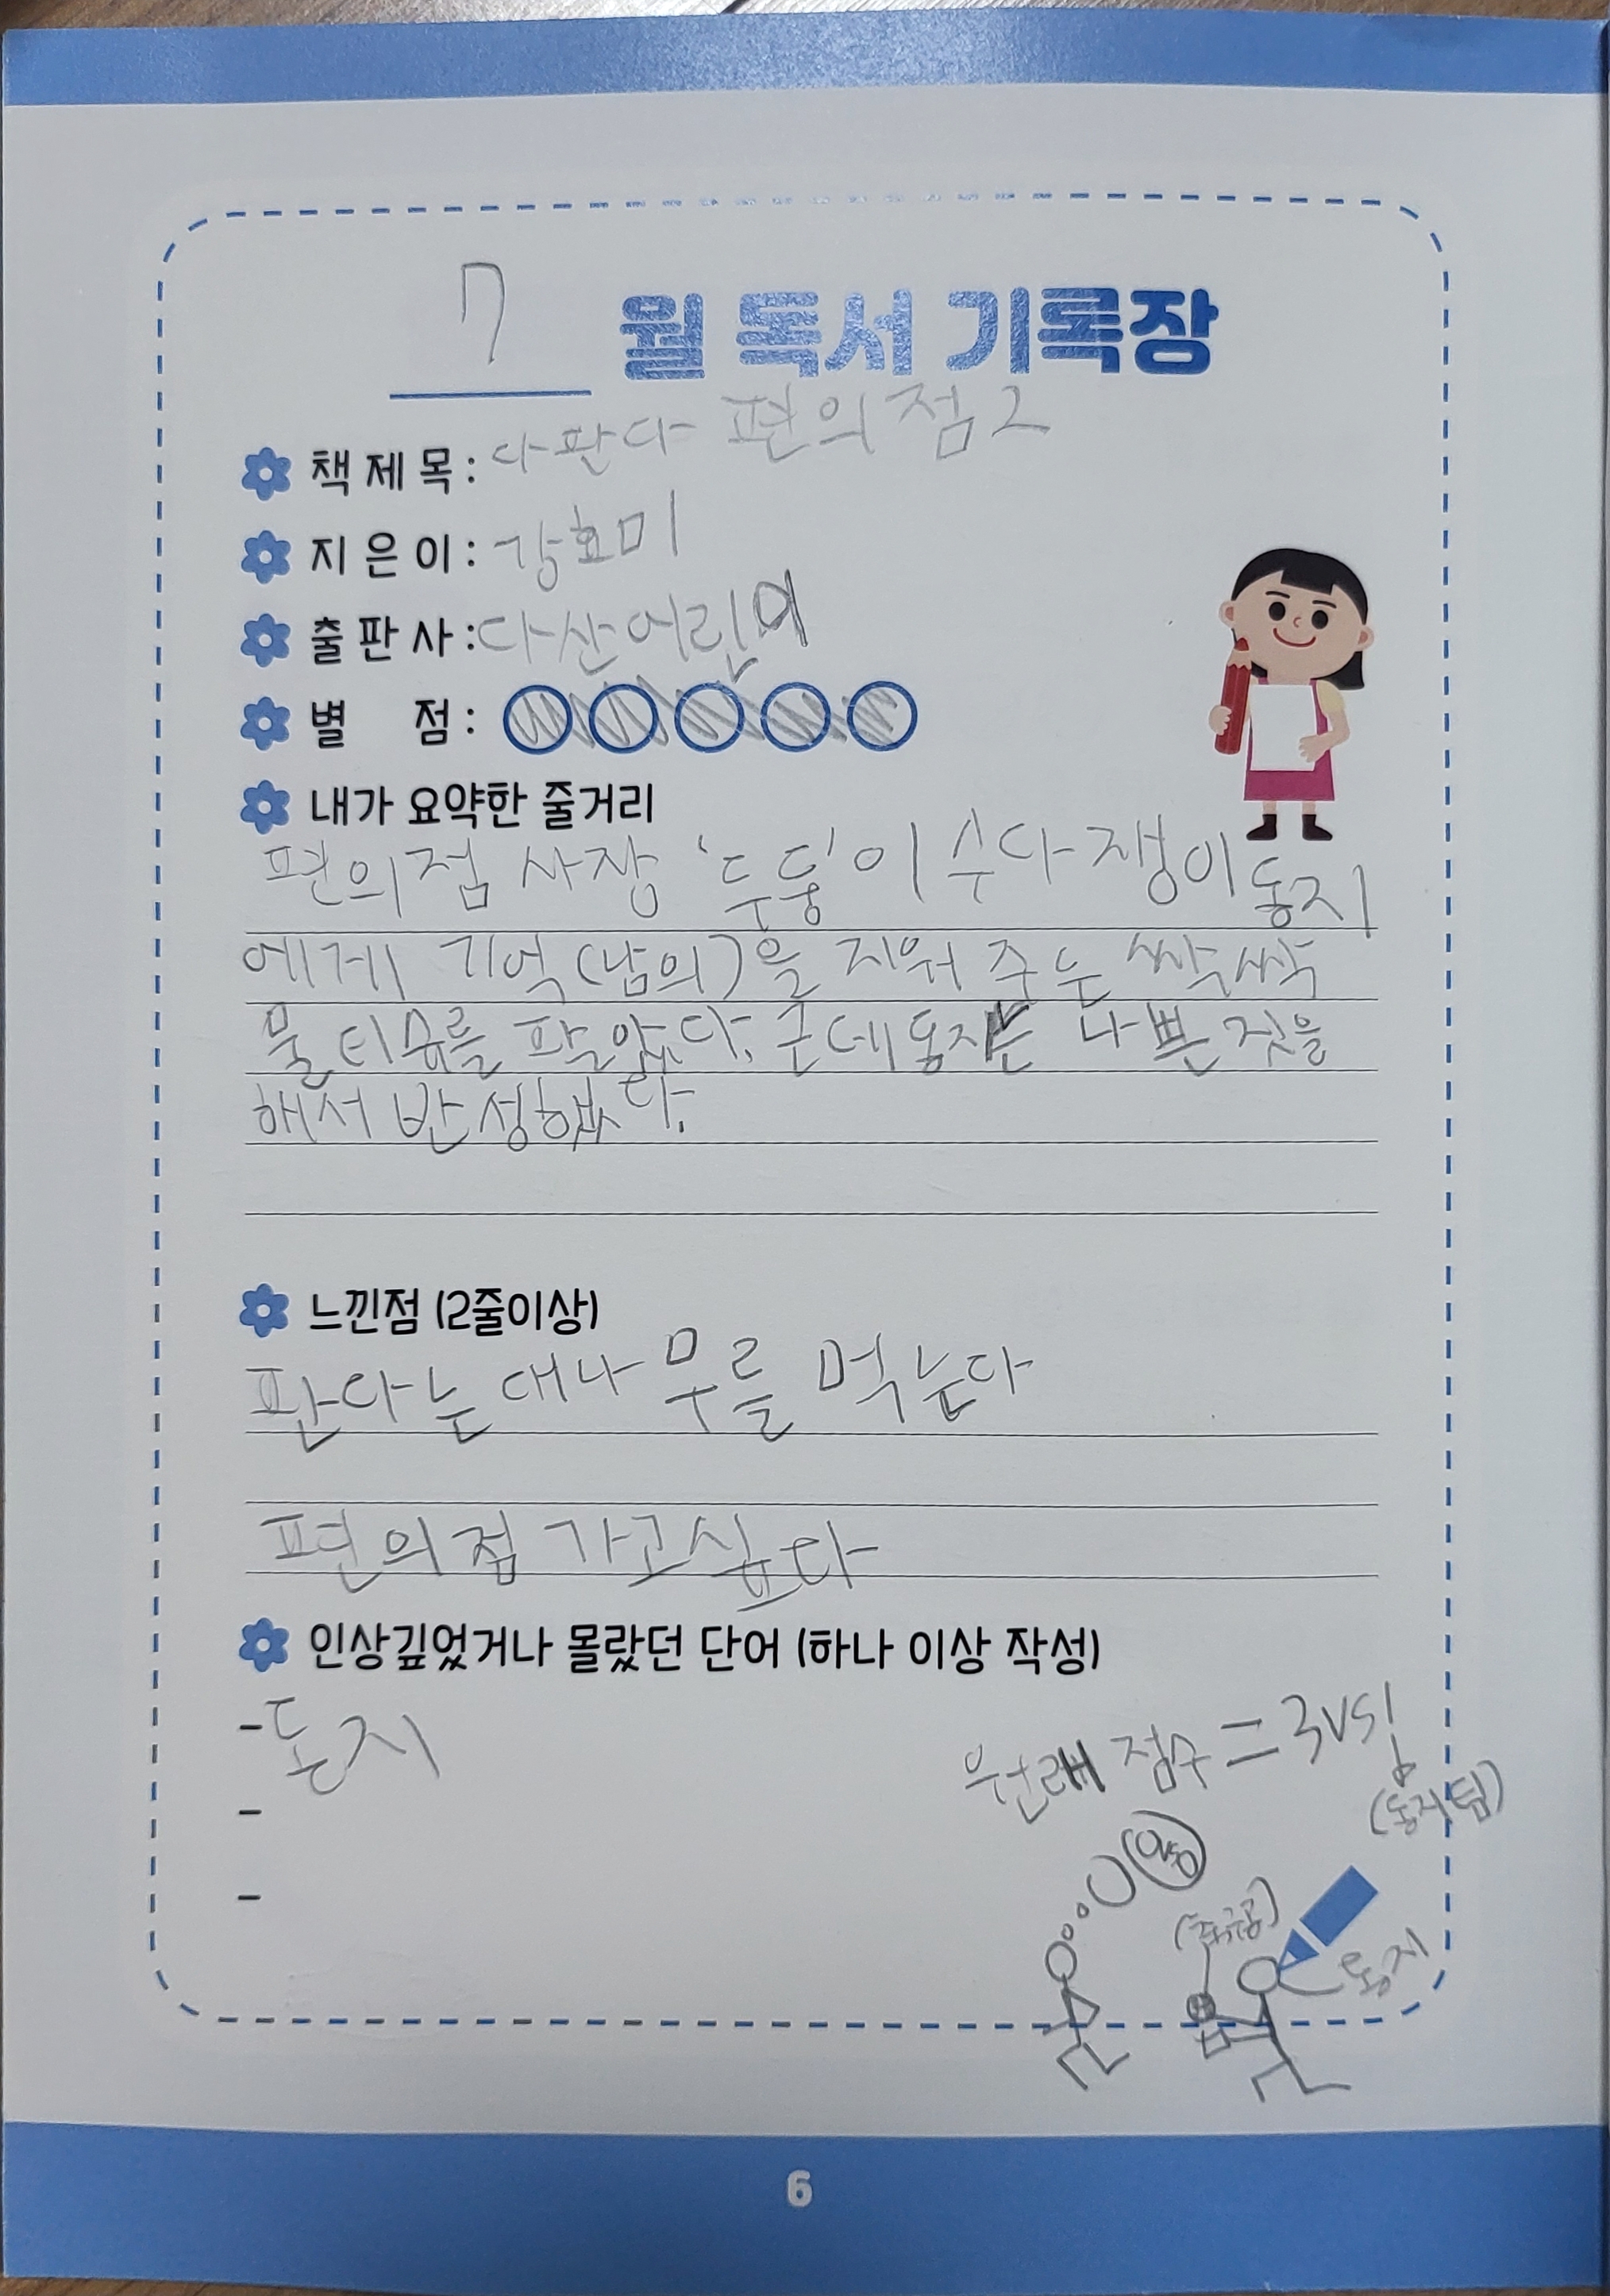 7 월 독서 기록장
책 제 목 : 다판다 편의점2
지 은 이 : 강효미
출 판 사 : 다산어린이
별 점 :
내가 요약한 줄거리
편의점 사장 '두둥'이 수다쟁이 동지
에게 기억(남의)을 지워 주는 싹싹
물티슈를 팔았다. 근데 동지는 나쁜 짓을
해서 반성했다.
느낀점 (2줄이상)
판다는 대나무를 먹는다
편의점 가고싶다
인상깊었거나 몰랐던 단어 (하나 이상 작성)
- 동지
-
-
원래 점수 = 3VS1
(동지팀)
동지
6